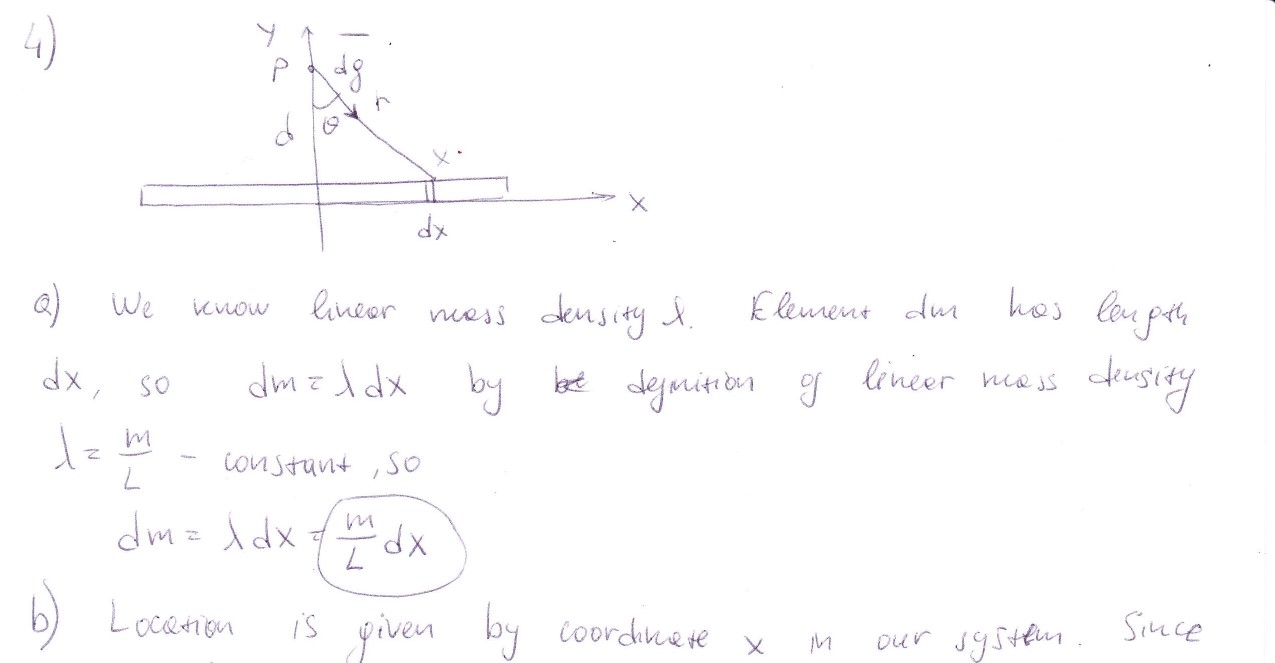 4)
y
P dg
r
d θ
x
x
dx
a) We know linear mass density λ. Element dm has length
dx, so dm = λ dx by definition of linear mass density
λ = m/L - constant, so
dm = λ dx = m/L dx
b) Location is given by coordinate x in our system. Since